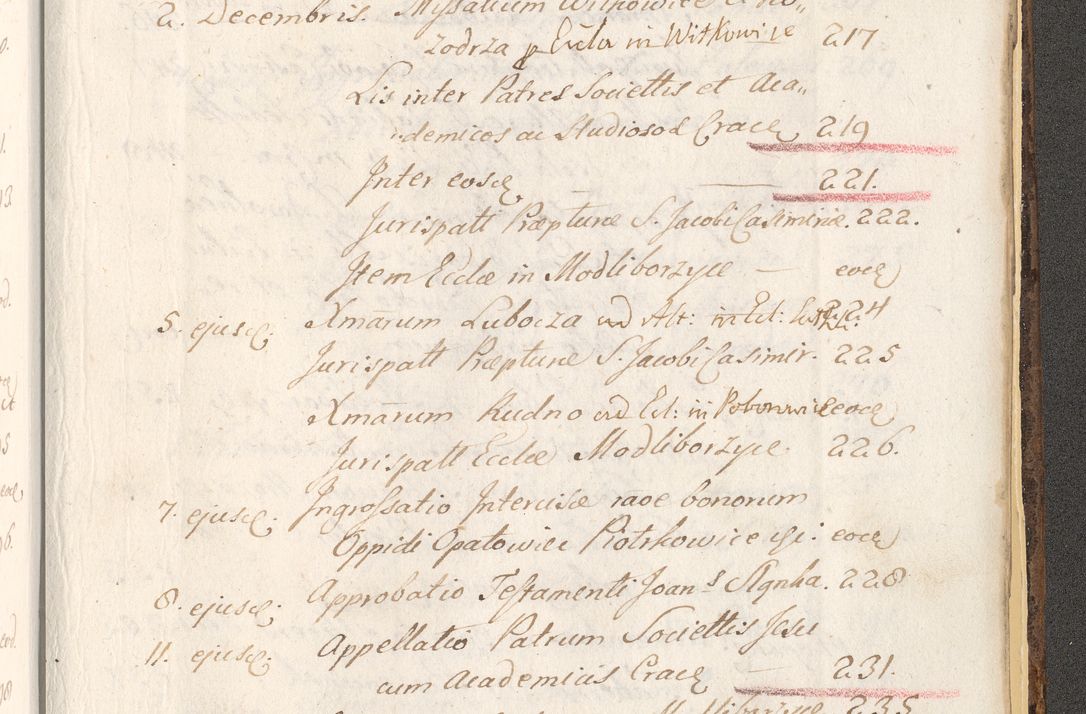 2. Decembris. Missalium Witkowice
zodrza p Eccla in Witkowice 217
Lis inter Patres Societtis et Aca„
demicos ac Studiosos Crace 219
Inter eosd. — 221.
Jurispatt Præpturæ S. Jacobi Casimiriæ. 222.
Item Eccle in Modliborzyce — eoce
5. ejusd. Xmarum Lubocza ad Alt: in Ecl: 224
Jurispatt Præpturæ S. Jacobi Casimir. 225
Xmarum Rudno ad Ecl: in eoce
Jurispatt Eccle Modliborzyce. 226.
7. ejusd. Ingrossatio Intercisæ raoe bonorum
Oppidi Opatowiec Piotrkowice eoce
8. ejusd. Approbatio Testamenti Joan s 228
11. ejusd. Appellatio Patrum Societtis Jesu
cum Academicis Crace — 231.
235